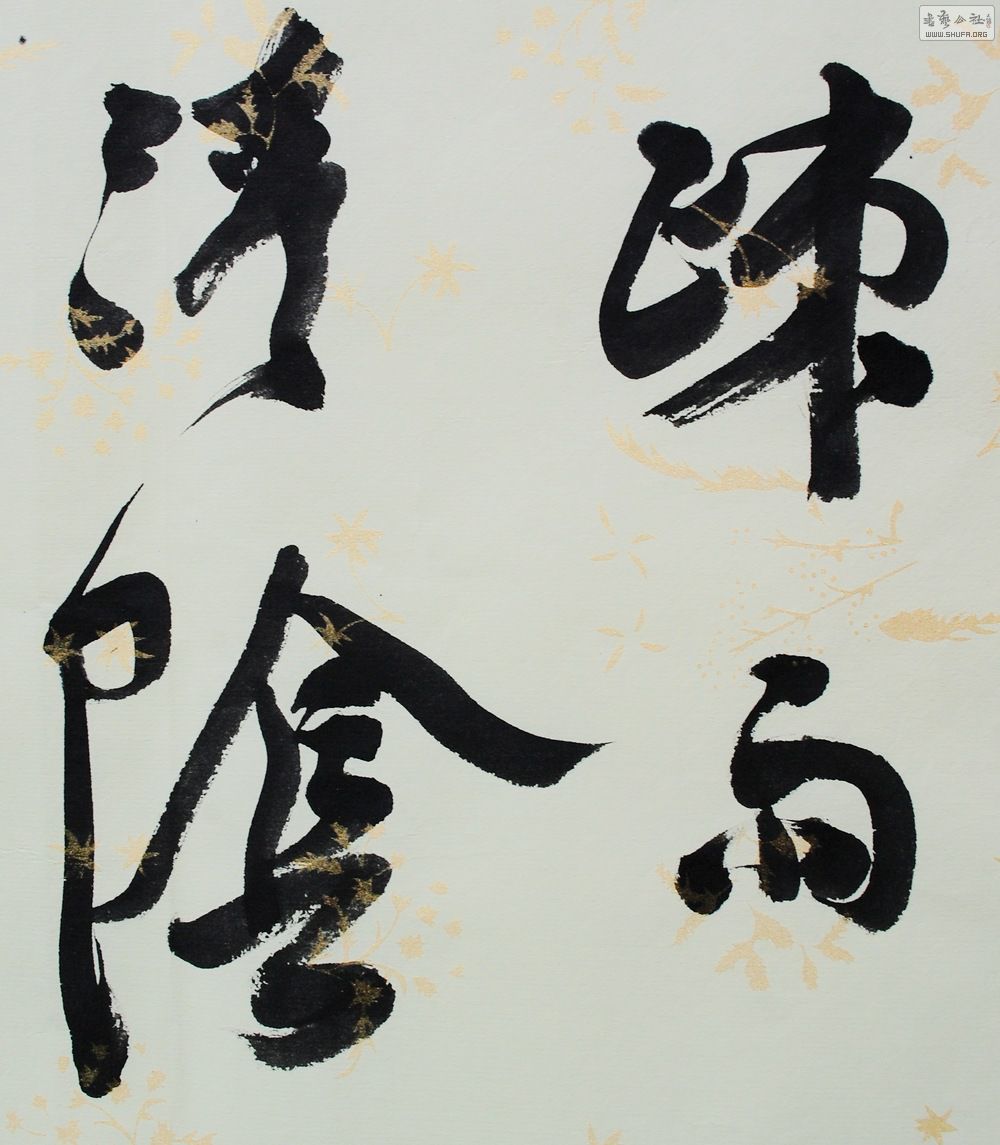 疎雨
清陰
書藝公社
WWW.SHUFA.ORG